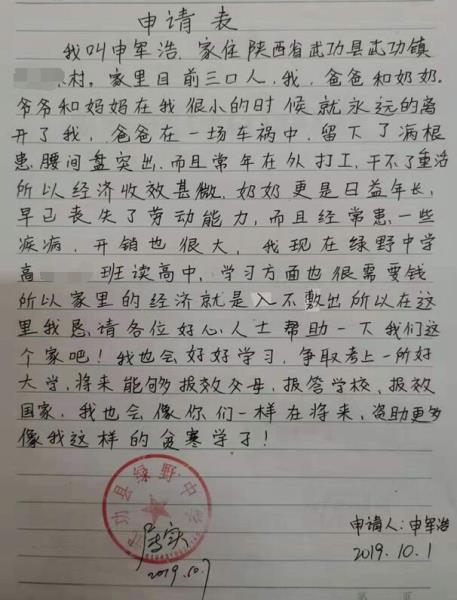 申请表
我叫申军浩，家住陕西省武功县武功镇
村。家里目前三口人，我，爸爸和奶奶。
爷爷和妈妈在我很小的时候就永远的离
开了我，爸爸在一场车祸中，留下了病根
患腰间盘突出，而且常年在外打工，干不了重活
所以经济收效甚微，奶奶更是日益年长，
早已丧失了劳动能力，而且经常患一些
疾病，开销也很大，我现在绿野中学
高 班读高中，学习方面也很需要钱
所以家里的经济就是入不敷出所以在这
里我恳请各位好心人士帮助一下我们这
个家吧！我也会好好学习，争取考上一所好
大学，将来能够报效父母，报答学校，报效
国家，我也会像你们一样在将来，资助更多
像我这样的贫寒学子！
武功县绿野中学
属实
2019.10.7
申请人：申军浩
2019.10.1